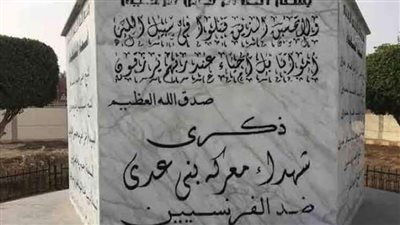 بسم الله الرحمن الرحيم
ولا تحسبن الذين قتلوا في سبيل الله
أمواتا بل أحياء عند ربهم يرزقون
صدق الله العظيم
ذكرى
شهداء معركه بنى عدى
ضد الفرنسيين